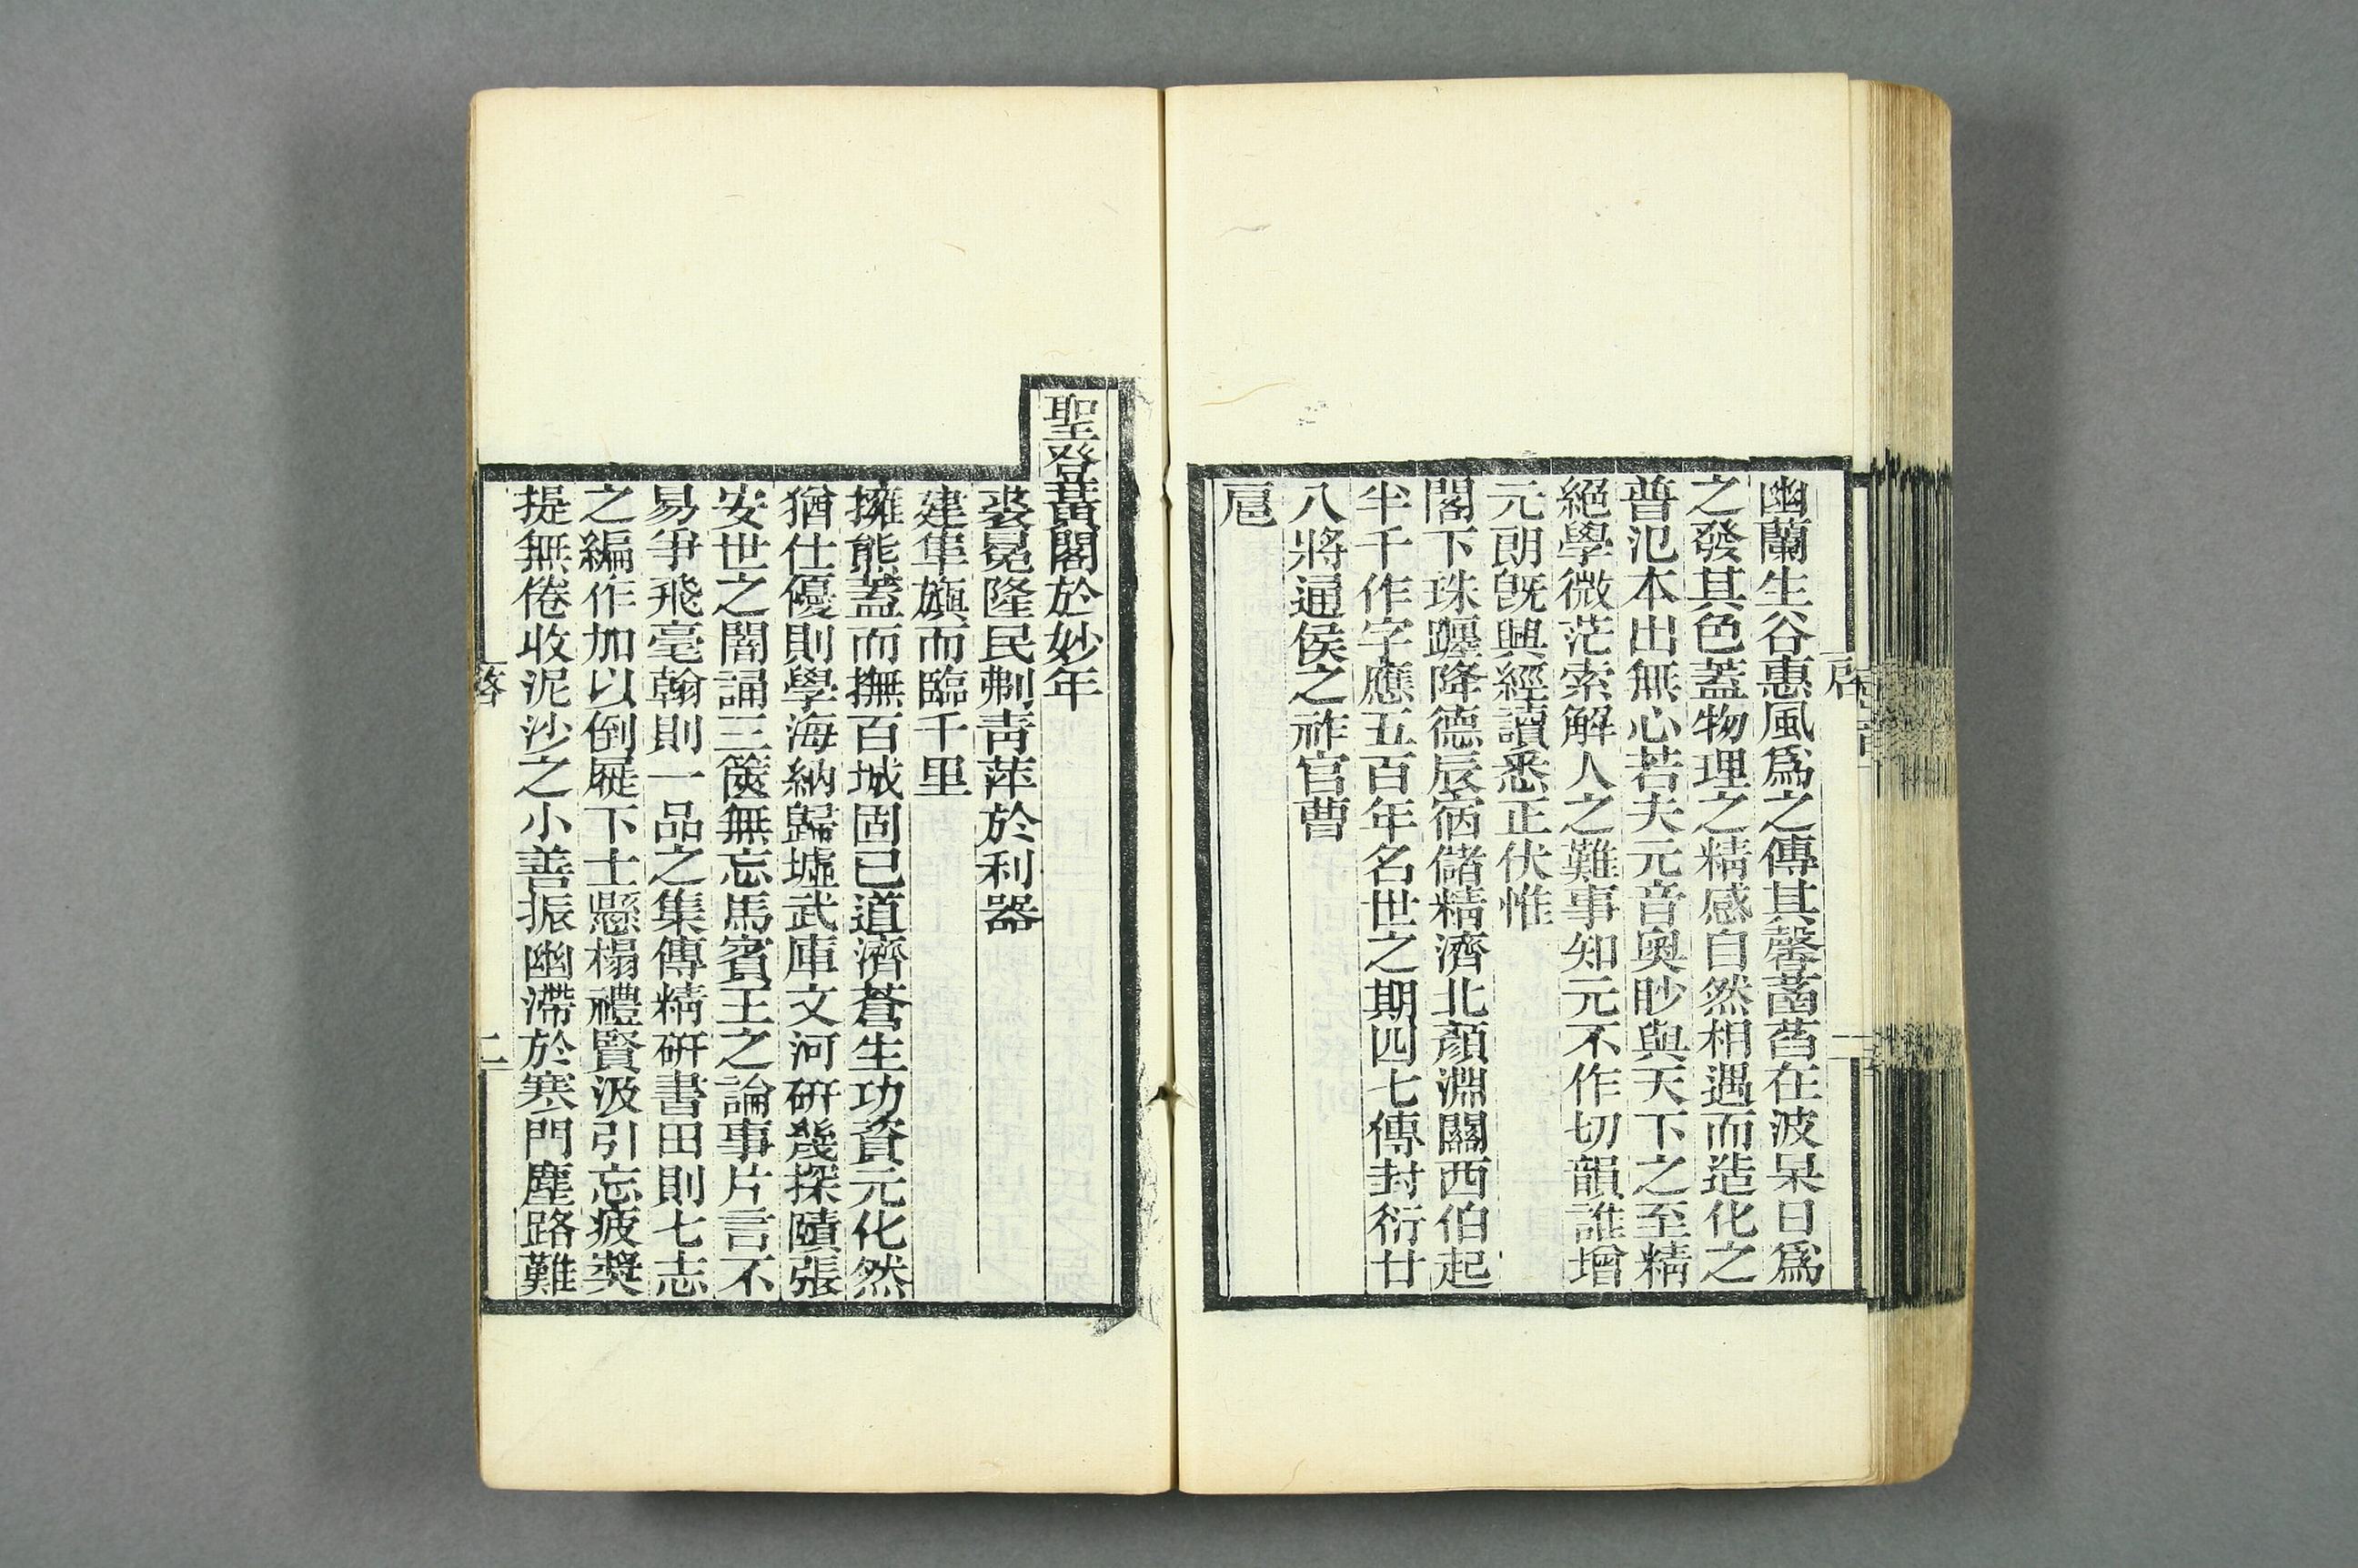 幽蘭生谷惠風爲之傳其馨菡萏在波杲日爲
之發其色蓋物理之精感自然相遇而造化之
普氾本出無心若夫元音奥眇與天下之至精
絕學微茫索解人之難事知元不作切韻誰增
元朗旣興經讀悉正伏惟
閣下珠躔降德辰宿儲精濟北顏淵關西伯起
半千作字應五百年名世之期四七傳封衍廿
八將通侯之祚官曹
扈
聖登黃閣於妙年
裘冕隆民剸靑萍於利器
建隼旟而臨千里
擁熊蓋而撫百城固已道濟蒼生功資元化然
猶仕優則學海納歸墟武庫文河研幾探賾張
安世之闇誦三篋無忘馬賓王之論事片言不
易爭飛毫翰則一品之集傳精研書田則七志
之編作加以倒屣下士懸榻禮賢汲引忘疲獎
提無倦收泥沙之小善振幽滯於寒門塵路難
啓
二